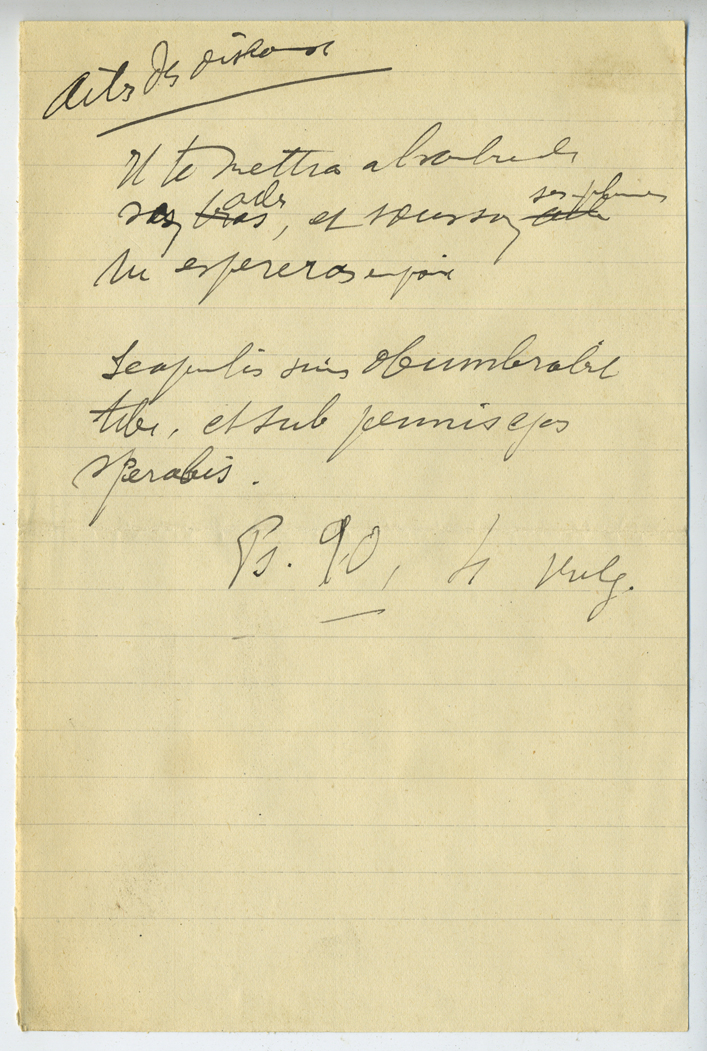 ailes des oiseaux
Il te mettra à l'ombre de
ailes ses plumes
ses bras, et sous son aile
tu espereras en joie
Scapulis suis obumbrabit
tibi, et sub pennis ejus
sperabis.
Ps. 90, 4 Vulg.